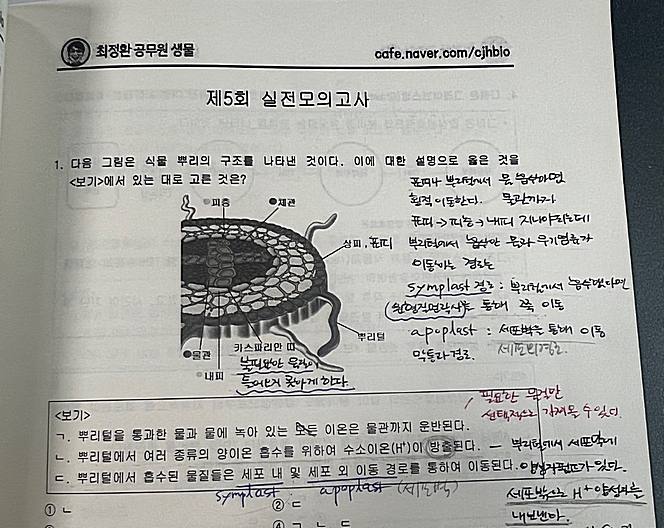 최정환 공무원 생물
cafe.naver.com/cjhbio
제5회 실전모의고사
1. 다음 그림은 식물 뿌리의 구조를 나타낸 것이다. 이에 대한 설명으로 옳은 것을
<보기>에서 있는 대로 고른 것은?
표피나 뿌리털에서 물 흡수하면
횡적 이동한다. 물관까지
표피 → 피층 → 내피 지나야하는데
뿌리털에서 흡수한 물과 무기염류가
이동하는 경로는
symplast 경로: 뿌리털에서 흡수했다면
(원형질연락사)를 통해 쭉 이동
apoplast : 세포벽을 통해 이동
세포벽경로.
피층
체관
상피, 표피
뿌리털
물관
내피
카스파리안 띠
불필요한 물질이
들어오지 못하게 한다.
필요한 물질만
선택적으로
<보기>
ㄱ. 뿌리털을 통과한 물과 물에 녹아 있는 모든 이온은 물관까지 운반된다.
ㄴ. 뿌리털에서 여러 종류의 양이온 흡수를 위하여 수소이온(H⁺)이 방출된다. ― 뿌리털에서 세포막에
ㄷ. 뿌리털에서 흡수된 물질들은 세포 내 및 세포 외 이동 경로를 통하여 이동된다. 있다.
symplast apoplast (세포벽)
세포밖으로 H⁺
내보낸다.
① ㄴ
② ㄷ
④ ㄱ ㄴ ㄷ